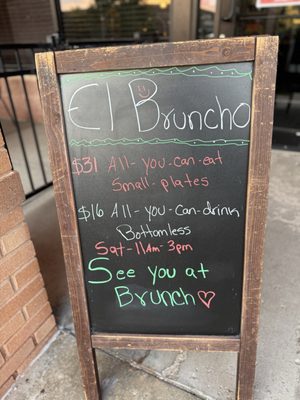 El Bruncho
$31 All-you-can-eat
Small-plates
$16 All-you-can-drink
Bottomless
Sat-11am-3pm
See you at
Brunch